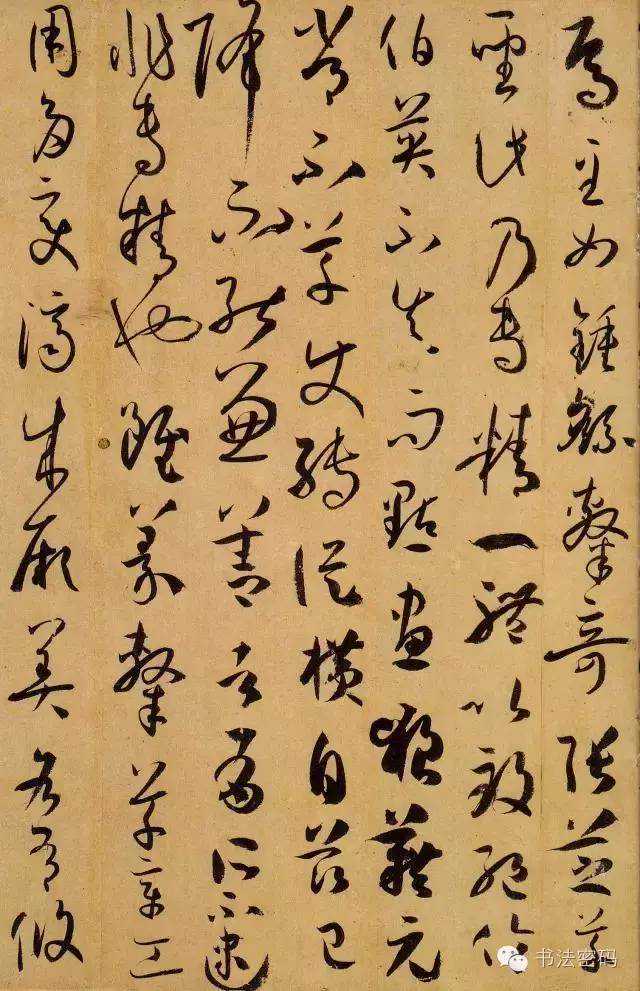 焉至如鍾繇隸奇張芝草
聖此乃專精一體以致絕倫
伯英不真而點畫狼藉元
常不草使轉從橫自茲已
降不能兼善者有所不逮
非專精也雖篆隸草章工
用多變濟成厥美各有攸
书法密码